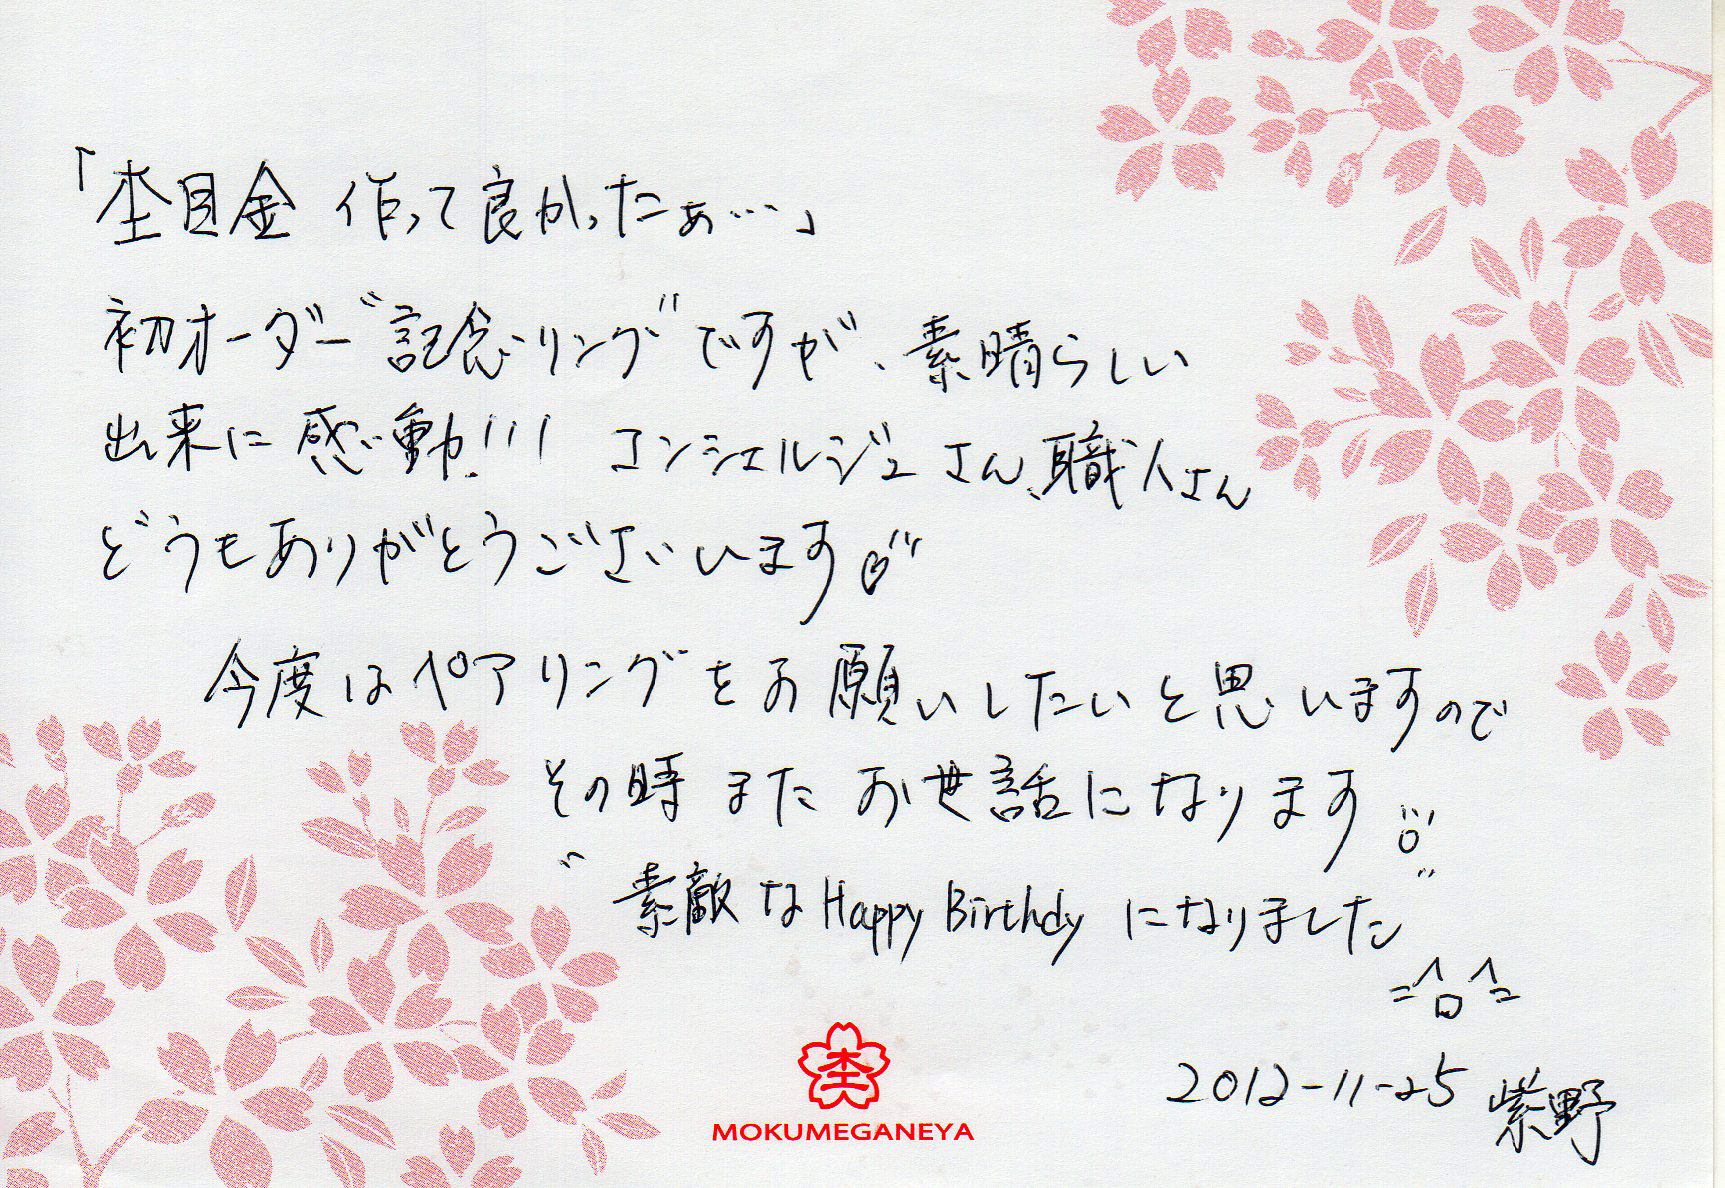 「杢目金 作って良かったぁ…」
初オーダー"記念リング"ですが、素晴らしい
出来に感動!!! コンシェルジュさん、職人さん
どうもありがとうございます
今度はペアリングをお願いしたいと思いますので
その時またお世話になります
"素敵なHappy Birthdyになりました"
=^ロ^=
2012-11-25 紫野
杢
MOKUMEGANEYA